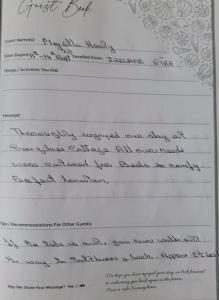 Guest Book
Guest Name(s) Majella Healy
Date Stayed 11th - 14th Sept Travelled From: IRELAND EIRE
Things / Activities You Did:
Message:
Thoroughly enjoyed our stay at
Seaglass Cottage. All our needs
were catered for. Beds so comfy
Perfect location.
Tips / Recommendations For Other Guests:
If the tide is out, you can walk all
the way to & back. Approx
We hope you have enjoyed your stay, we look forward
to welcoming you back again in the future.
Have a safe Journey home.
May We Share Your Message? Yes /